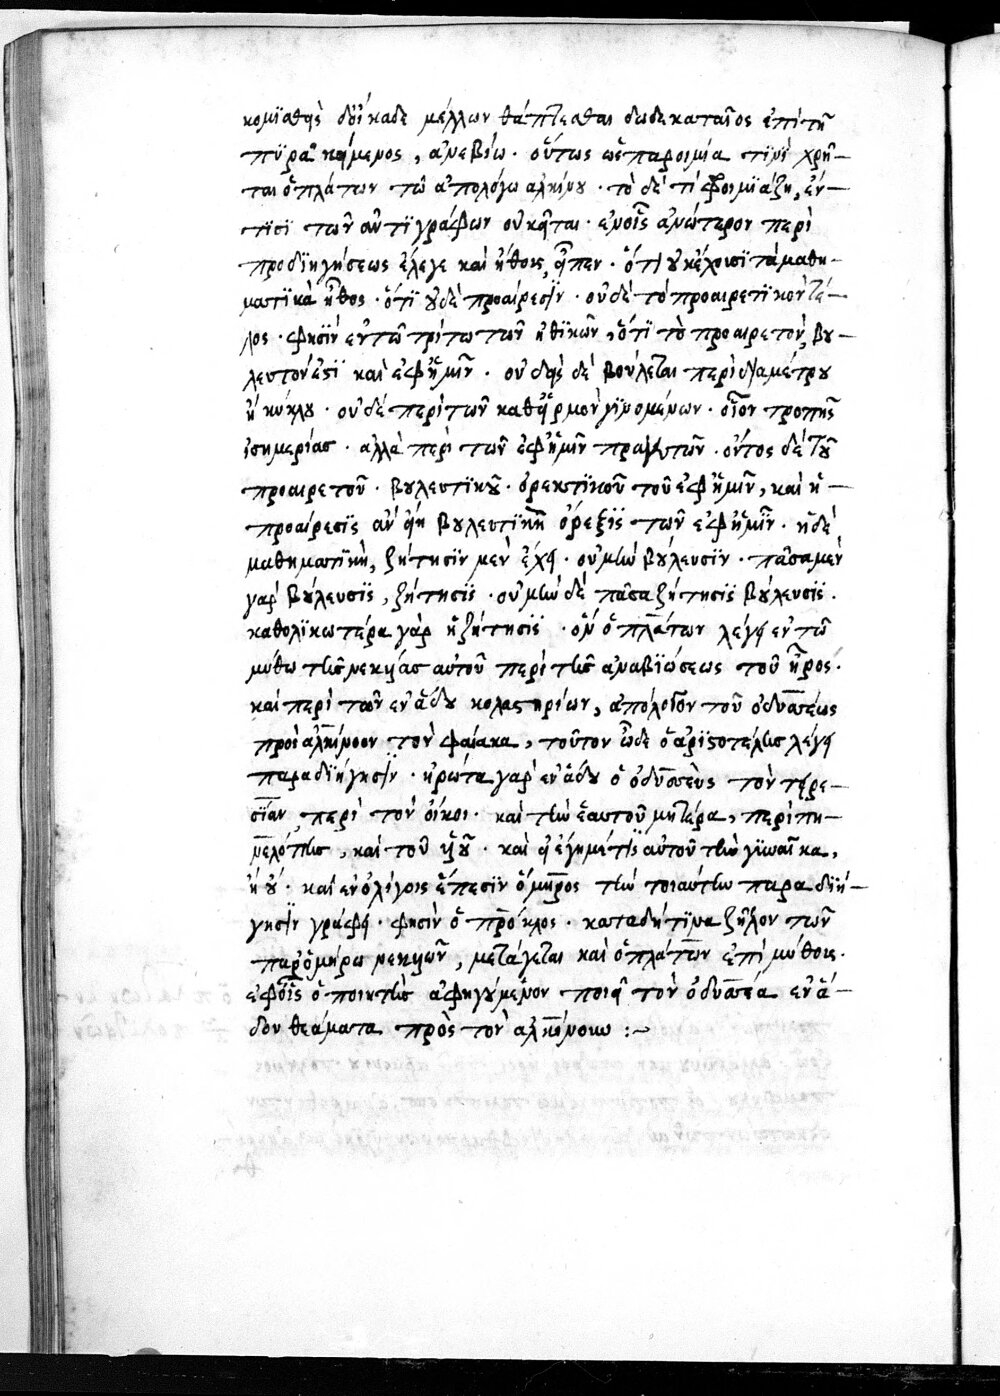 κομϊσθεὶς δ' οἴκαδε μέλλων θάπτεσθαι δωδεκαταῖος ἐπὶ τῆ
πϋρᾶ κείμενος, ἀνεβίω · οὕτως ὡς παροιμία τϊνὶ χρῆ–
ται ὁ πλάτων τῶ ἀπολόγω ἀλκίνου · τὸ δὲ τί φροιμϊάζη, ἐν–
τϊσὶ τῶν ἀντϊγράφων οὐ κεῖται · ἐν οἷς ἀνώτερον περὶ
προδϊηγήσεως ἔλεγε καὶ ἤθους εἶπεν · ὅτι οὐκ ἔχουσϊ τὰ μαθη–
ματϊκὰ ἦθος · ὅτϊ οὐδὲ προαίρεσϊν · οὐδὲ τὸ προαιρετϊκὸν τέ–
λος · φησϊν ἐν τῶ τρίτω τῶν ἠθϊκῶν, ὅτϊ τὸ προαιρετὸν, βου–
λευτόν ἐστϊ καὶ ἐφ' ἡμῖν · οὐδεὶς δὲ βούλεται περὶ διαμέτρου
ἢ κύκλου · οὐδὲ περὶ τῶν καθ' εἱρμὸν γϊνομένων · οἷον τροπῆς
ἰσημερίας · ἀλλὰ περὶ τῶν ἐφ' ἡμῖν πρακτῶν · ὄντος δὲ τοῦ
προαιρετοῦ · βουλευτϊκοῦ · ὀρεκτϊκοῦ τοῦ ἐφ' ἡμῖν, καὶ ἡ –
προαίρεσϊς ἂν εἴη βουλευτϊκὴ ὄρεξϊς τῶν ἐφ' ἡμῖν · ἡ δὲ
μαθηματϊκὴ, ζήτησϊν μὲν ἔχει · οὐ μὴν βούλευσϊν · πᾶσα μὲν
γὰρ βούλευσϊς, ζήτησϊς · οὐ μὴν δὲ πᾶσα ζήτησϊς βούλευσϊς ·
καθολϊκωτέρα γὰρ ἡ ζήτησϊς · ὃν ὁ πλάτων λέγει ἐν τῶ
μύθω τῆς νεκυίας αὐτοῦ περὶ τῆς ἀναβϊώσεως τοῦ ἠρὸς ·
καὶ περὶ τῶν ἐν ἅδου κολαστηρίων, ἀπόλογον τοῦ ὀδυσσέως
πρὸς ἀλκίνοον τὸν φαίακα, τοῦτον ὧδε ὁ ἀριστοτέλης λέγει
παραδϊήγησϊν · ἠρώτα γὰρ ἐν ἅδου ὁ ὀδυσσεὺς τὸν τειρε–
σίαν περὶ τῶν οἴκοι · καὶ τὴν ἑαυτοῦ μητέρα, περὶ πη–
νελόπης, καὶ τοῦ υἱοῦ · καὶ εἰ ἔγημέ τϊς αὐτοῦ τὴν γϋναῖκα,
ἢ οὔ · καὶ ἐν ὀλίγοις ἔπεσϊν ὅμηρος τὴν τοιαύτην παραδϊή–
γησϊν γράφει · φησὶν ὁ πρόκλος · κατὰ δή τϊνα ζῆλον τῶν
παρ' ὁμήρω νεκυιῶν, μετάγεται καὶ ὁ πλάτων ἐπὶ μύθους ·
ἐφ' οἷς ὁ ποιητὴς ἀφηγούμενον ποιεῖ τὸν ὀδυσσέα ἐν ἅ–
δου θεάματα πρὸς τὸν ἀλκίνουν :–